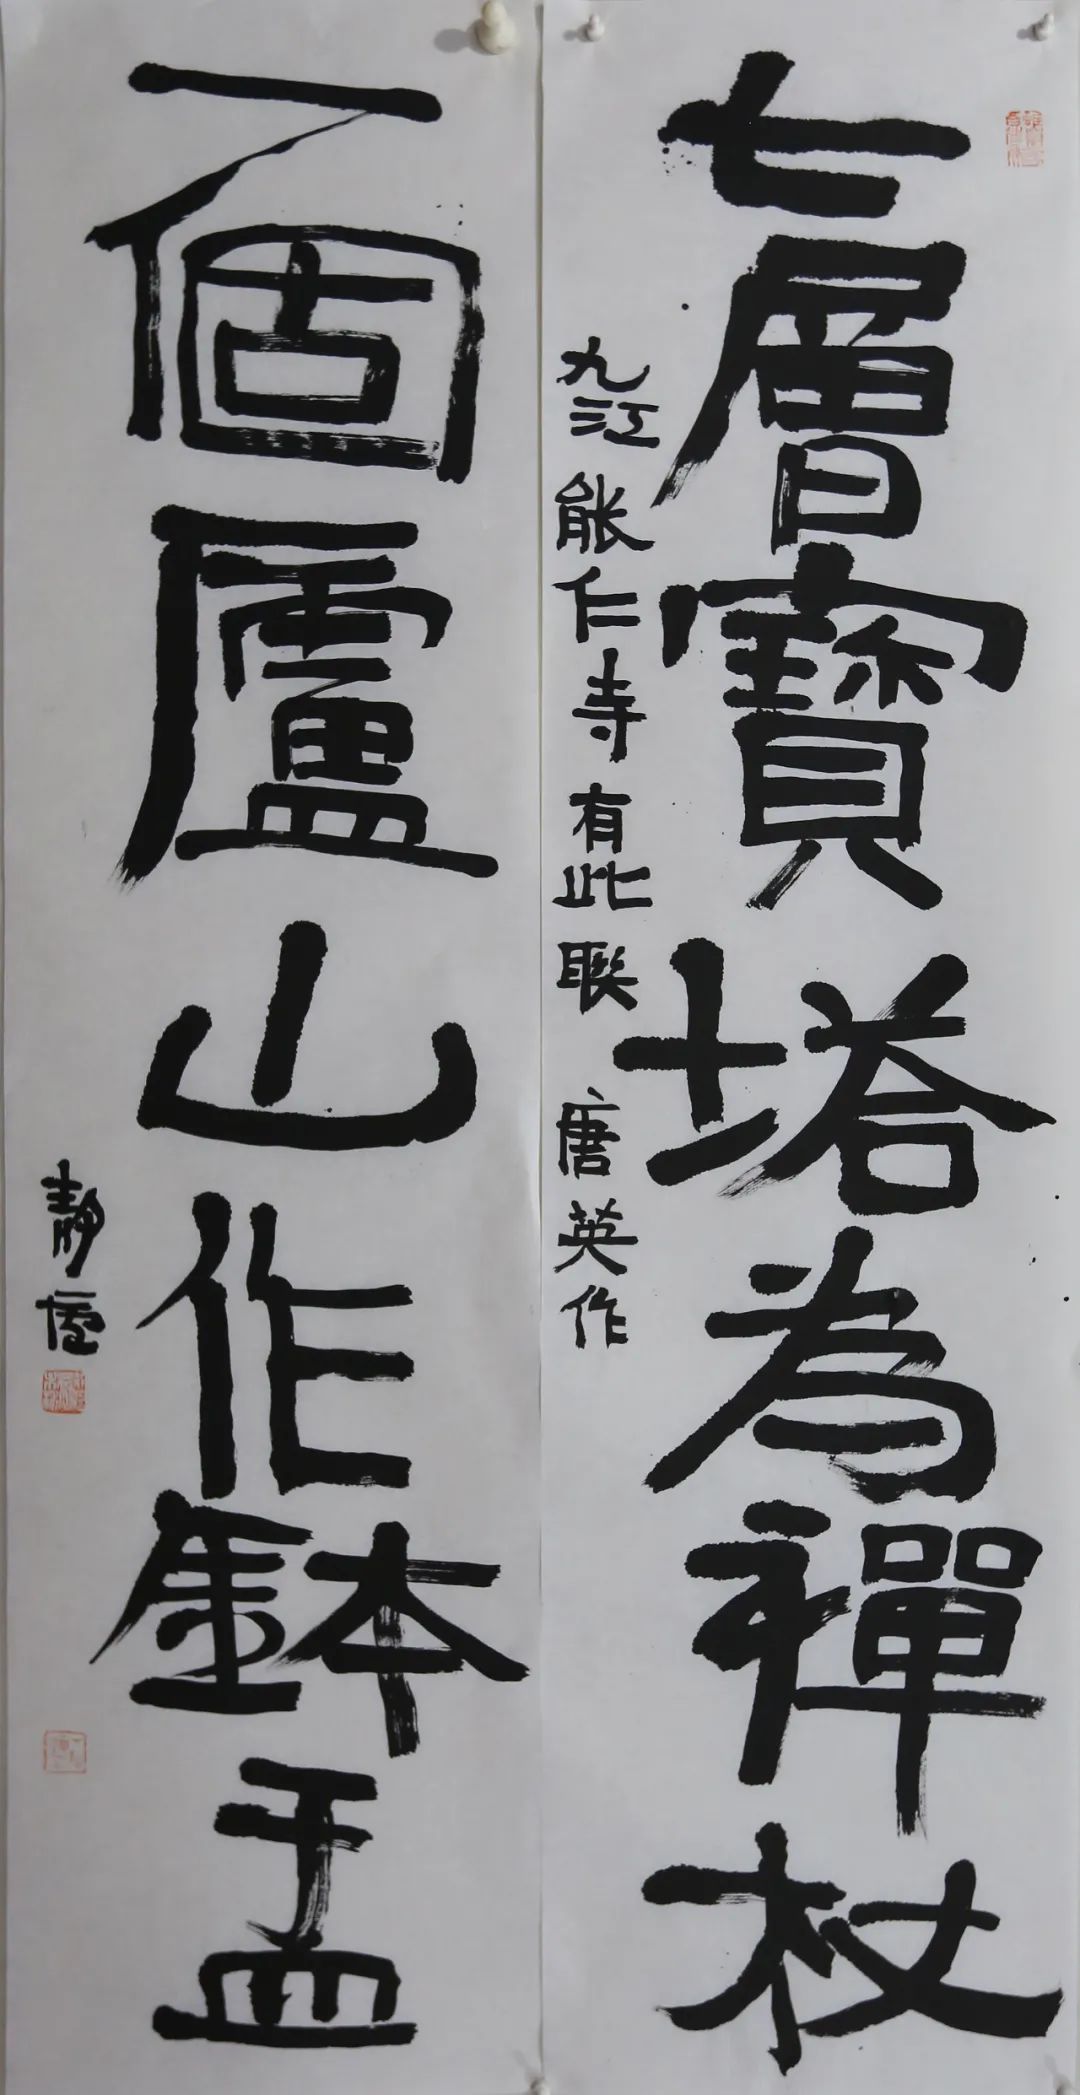 七層寶塔為禪杖
九江能仁寺有此聯 唐英作
一個廬山作鉢盂
靜廬